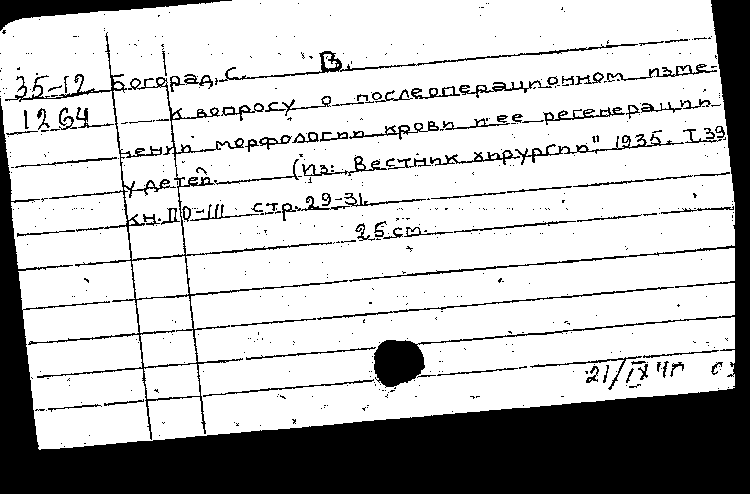 35-12 Богорад, С. В.
1264 К вопросу о послеоперационном изме-
нении морфологии крови и ее регенерации
у детей. (Из: „Вестник хирургии" 1935. Т.39
кн. 110-111 стр. 29-31.
25 см.
21/IX